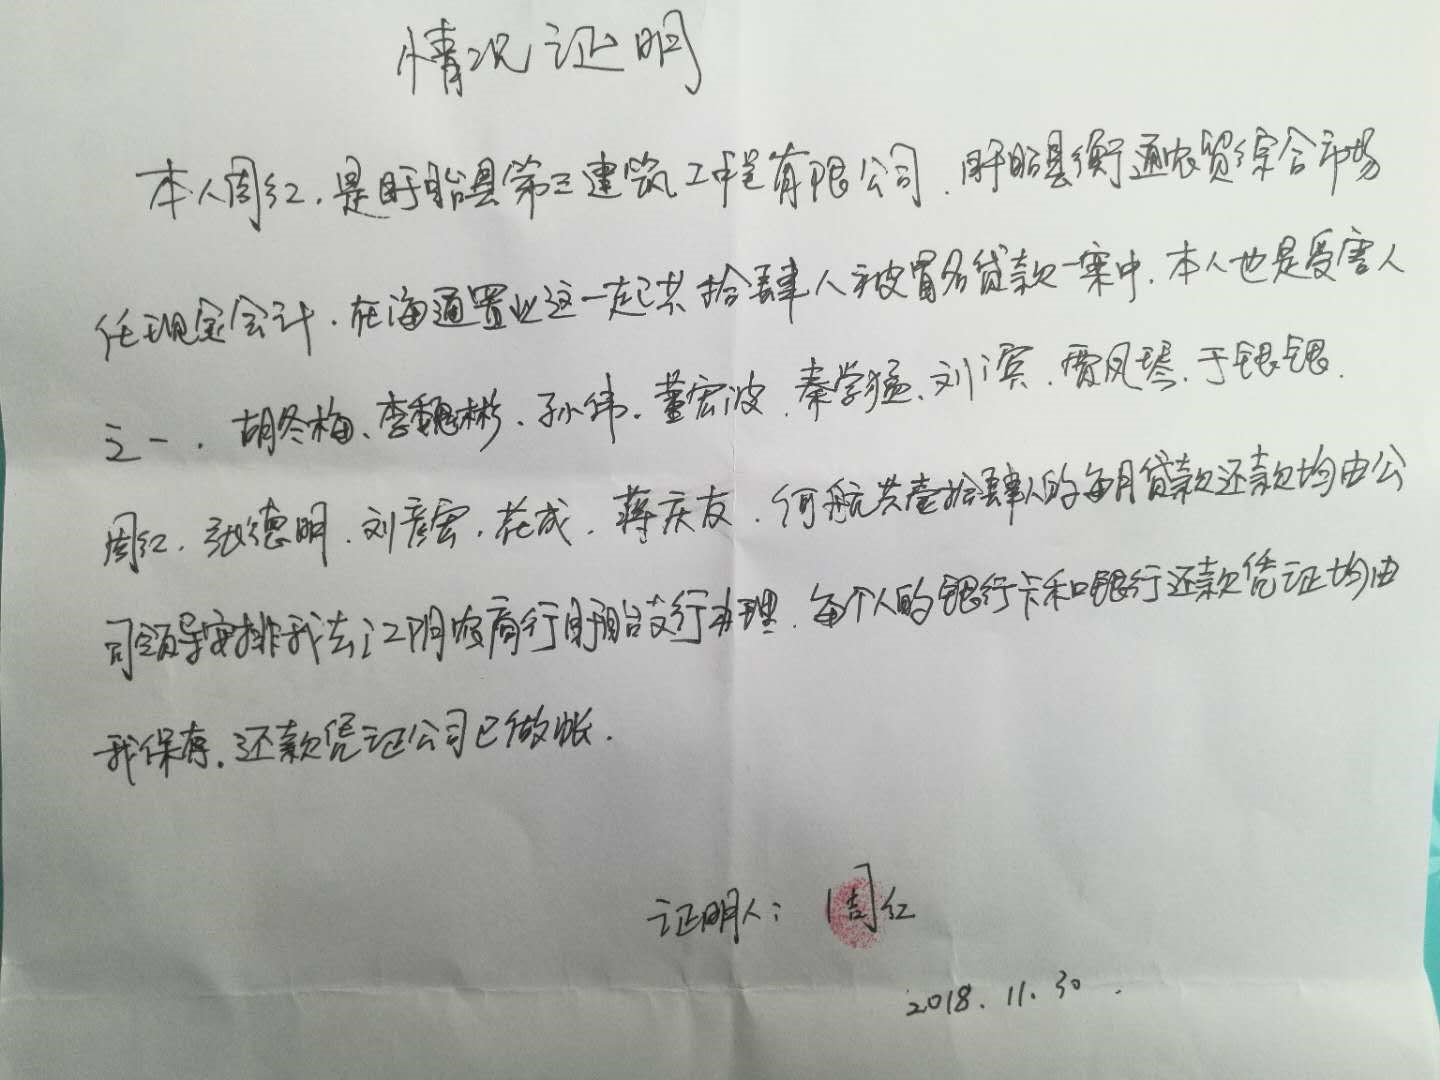 情况证明
本人周红，是盱眙县第三建筑工程有限公司、盱眙县衡通农贸综合市场
任现金会计，在海通置业这一起共拾肆人被冒名贷款一案中，本人也是受害人
之一，胡冬梅、李魏彬、孙伟、董宏波、秦学猛、刘滨、贾凤琴、于银银、
周红、张德明、刘彦宏、花成、蒋庆友、何航共壹拾肆人的每月贷款还款均由公
司领导安排我去江阴农商行盱眙支行办理，每个人的银行卡和银行还款凭证均由
我保存，还款凭证公司已做账．
证明人：周红
2018.11.30.